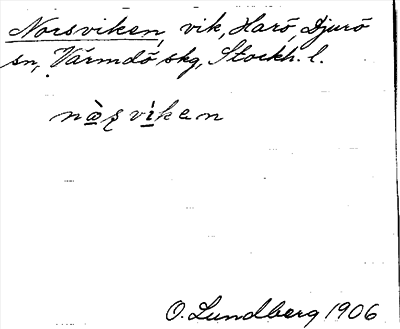 Norsviken, vik, Harö, Djurö
sn, Värmdö skg, Stockh. l.
nὰʂvìken
O. Lundberg 1906